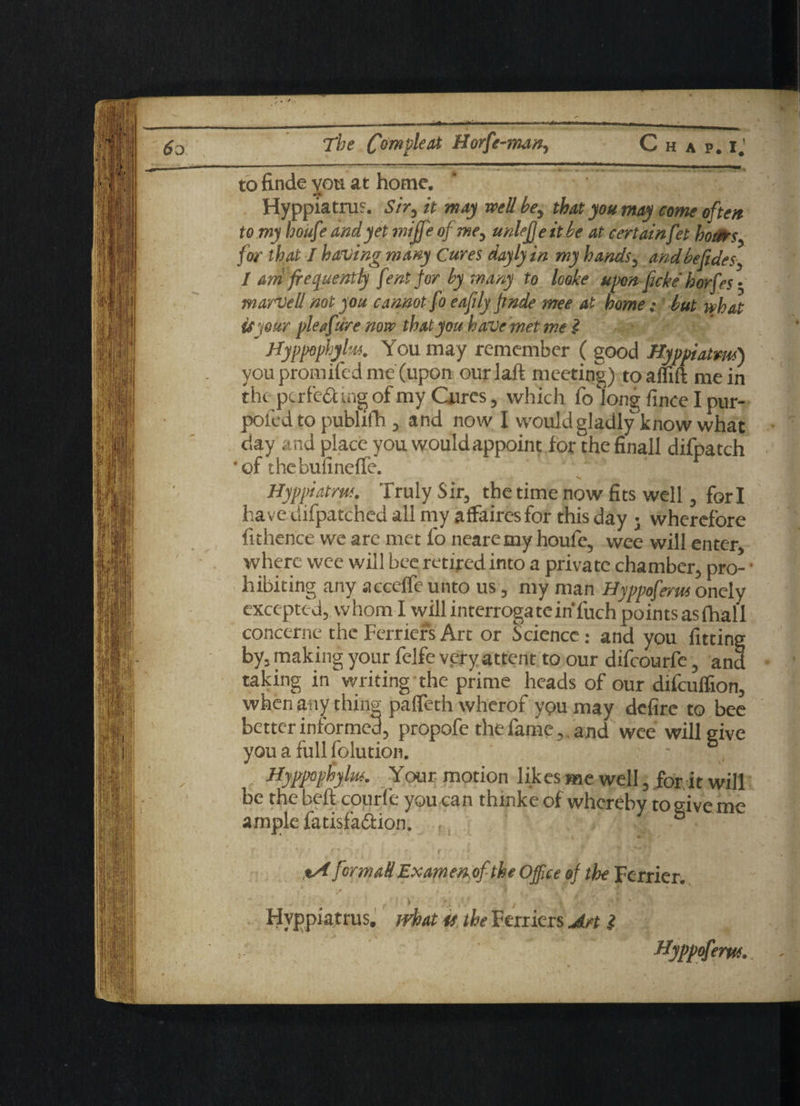 60 The Compleat Horſe-man, CHAP. I.
to finde you at home.
Hyppiatrus. Sir, it may well be, that you may come often
to my houſe and yet miſſe of me, unleſſe it be at certain ſet houres,
for that I having many Cures dayly in my hands, and beſides,
I am frequently ſent for by many to looke upon ſicke horſes;
marvell not you cannot ſo eaſily finde mee at home: but what
is your pleaſure now that you have met me?
Hyppophylus. You may remember (good Hyppiatrus)
you promiſed me (upon our laſt meeting) to aſſiſt me in
the perfecting of my Cures, which ſo long ſince I pur-
poſed to publiſh, and now I would gladly know what
day and place you would appoint for the finall diſpatch
of the buſineſſe.
Hyppiatrus. Truly Sir, the time now fits well, for I
have diſpatched all my affaires for this day; wherefore
ſithence we are met ſo neare my houſe, wee will enter,
where wee will bee retired into a private chamber, pro-
hibiting any acceſſe unto us, my man Hyppoſerus onely
excepted, whom I will interrogate in ſuch points as ſhall
concerne the Ferriers Art or Science: and you ſitting
by, making your ſelfe very attent to our diſcourſe, and
taking in writing the prime heads of our diſcuſſion,
when any thing paſſeth wherof you may deſire to bee
better informed, propoſe the ſame, and wee will give
you a full ſolution.
Hyppophylus. Your motion likes me well, for it will
be the beſt courſe you can thinke of whereby to give me
ample ſatisfaction.
A formall Examen of the Office of the Ferrier.
Hyppiatrus. What is the Ferriers Art?
Hyppoſerus.